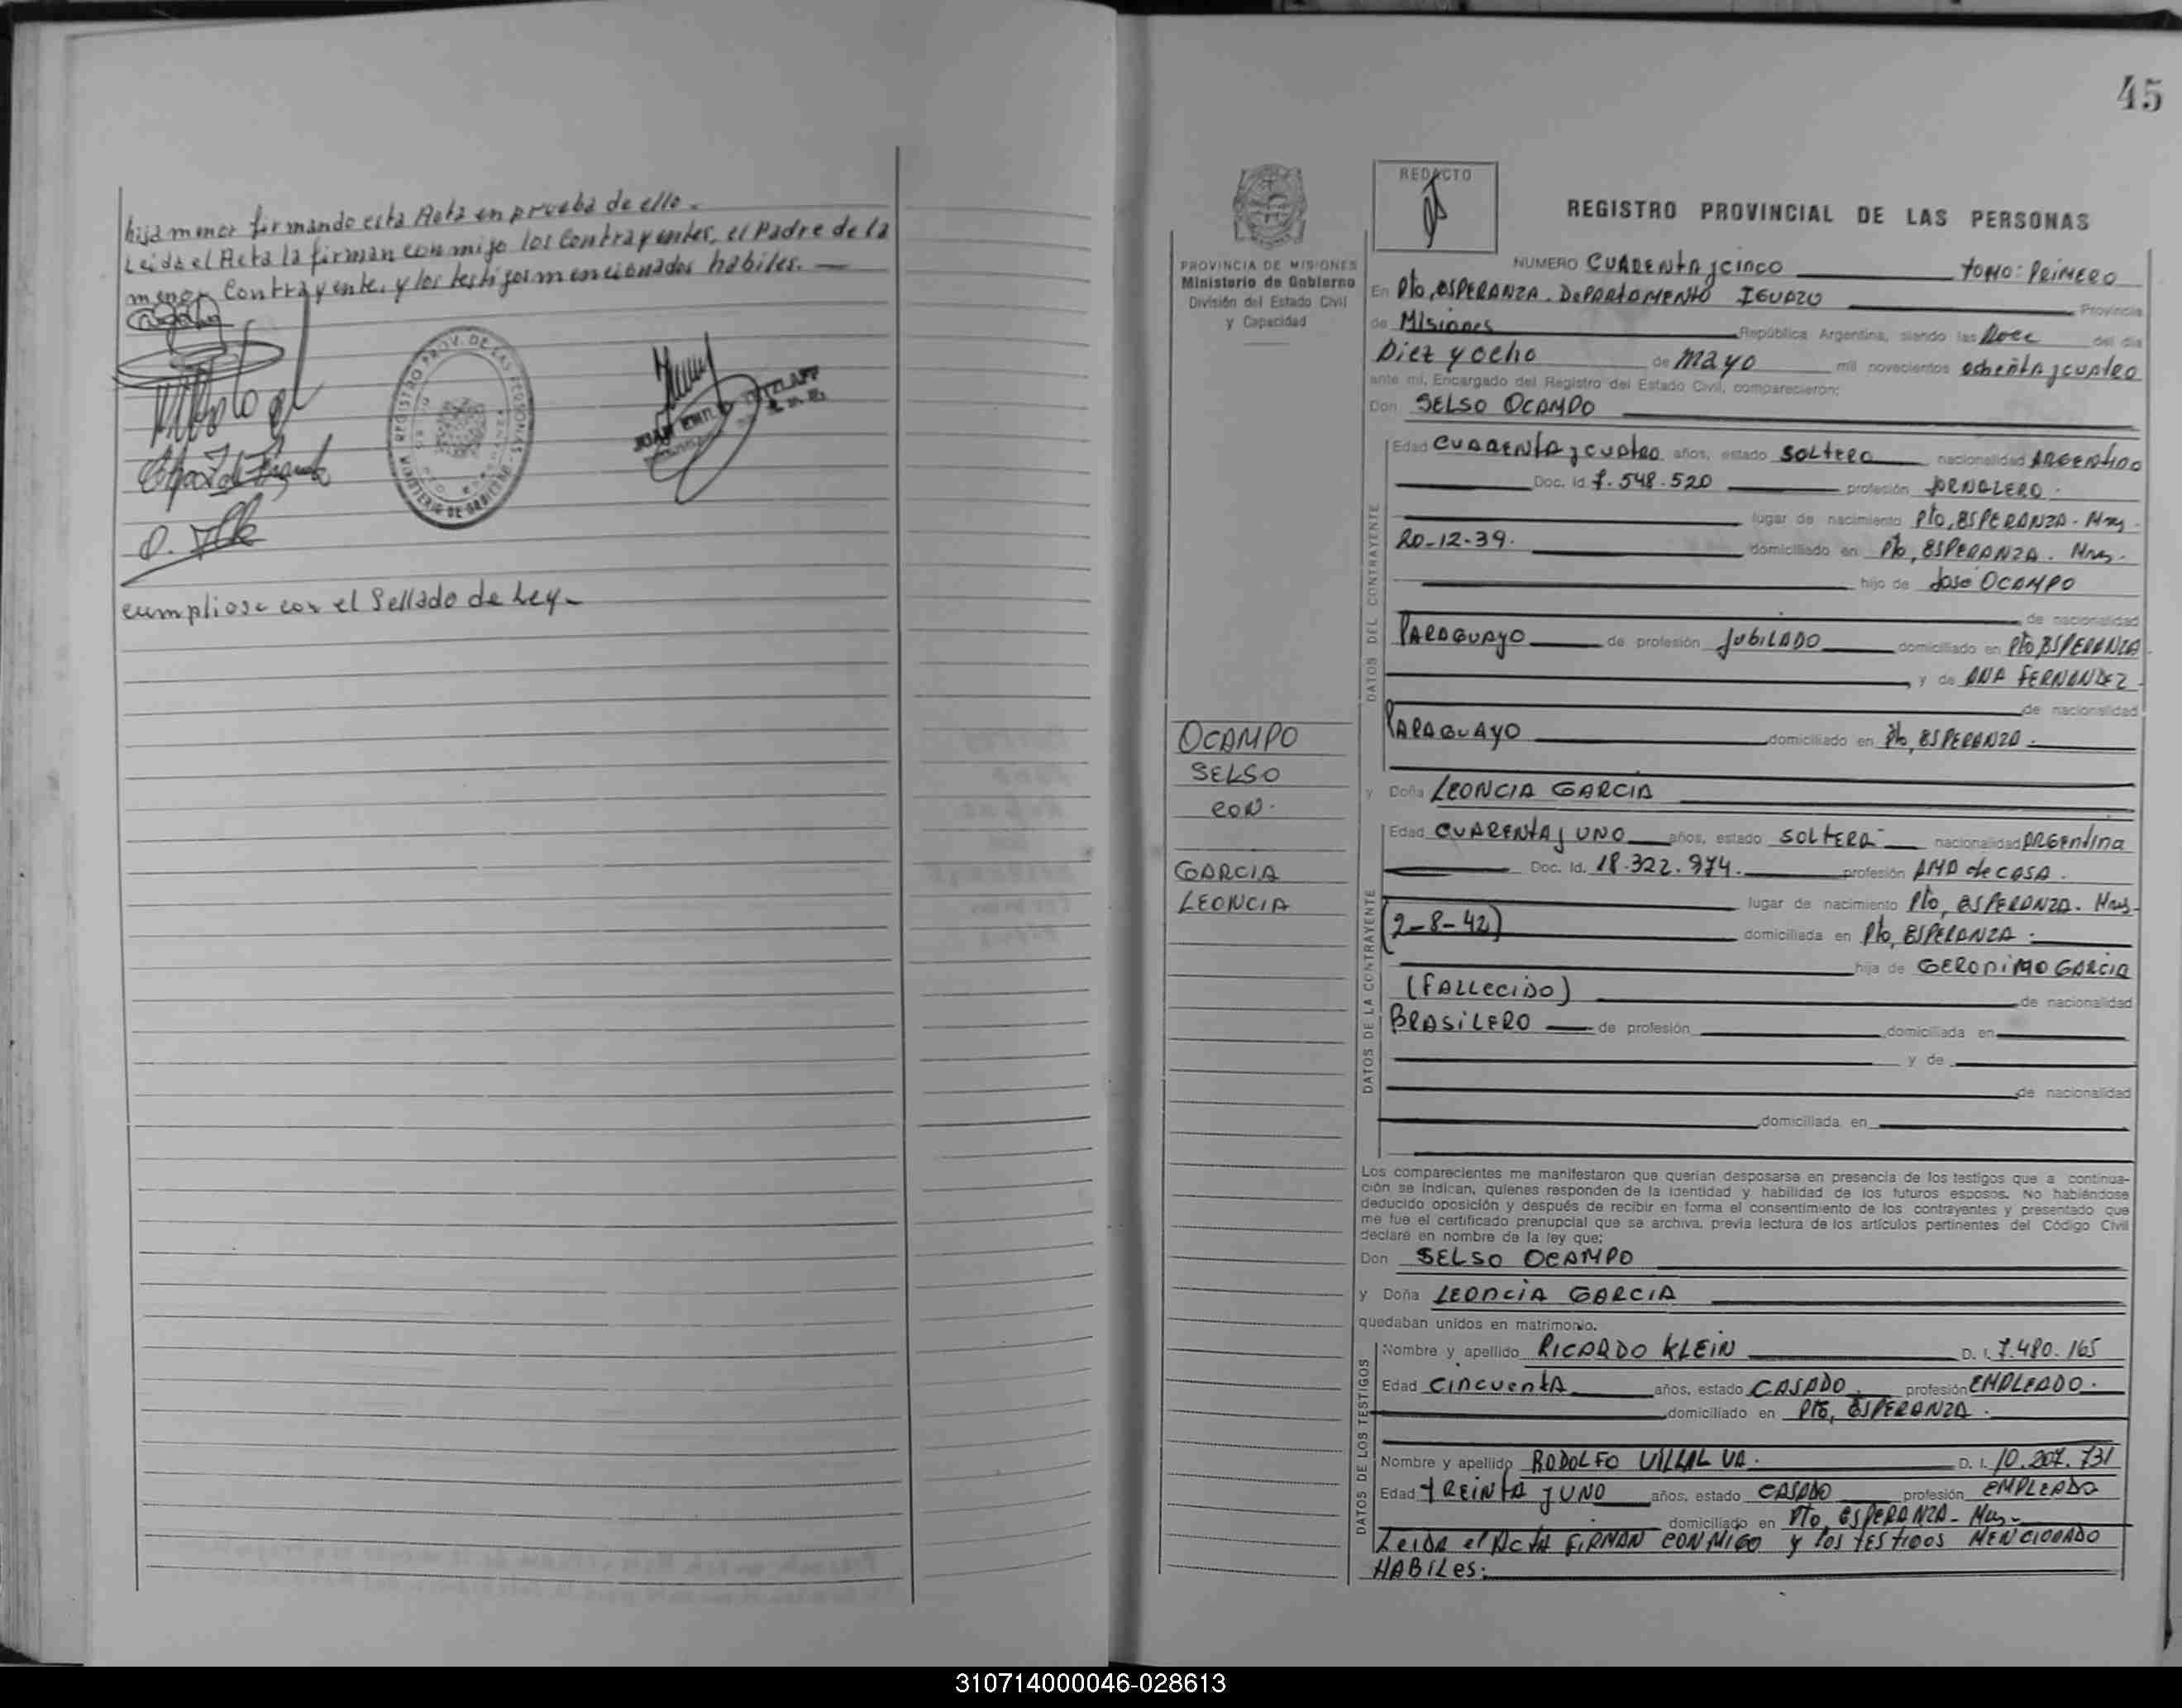 hija menor firmando esta Acta en prueba de ello.
Leida el Acta la firman conmigo los Contrayentes, el Padre de la
menor Contrayente, y los testigos mencionados habiles.
REGISTRO PROV. DE LAS PERSONAS
MINISTERIO DE GOBIERNO
JUAN
cumpliose con el Sellado de Ley
45
REDACTO
REGISTRO PROVINCIAL DE LAS PERSONAS
PROVINCIA DE MISIONES
Ministerio de Gobierno
División del Estado Civil
y Capacidad
NUMERO CUARENTA y CINCO TOMO: PRIMERO
En Pto, ESPERANZA. DEPARTAMENTO IGUAZU Provincia
de Misiones República Argentina, siendo las Doce del día
Diez y ocho de mayo mil novecientos ochenta y cuatro
ante mí, Encargado del Registro del Estado Civil, comparecieron:
Don SELSO OCAMPO
DATOS DEL CONTRAYENTE
Edad CUARENTA y CUATRO años, estado SOLTERO nacionalidad ARGENTINO
Doc. Id. 7.548.520 profesión JORNALERO.
lugar de nacimiento Pto, ESPERANZA. Mns.
20-12-39. domiciliado en Pto, ESPERANZA. Mns.
hijo de José OCAMPO
de nacionalidad
PARAGUAYO de profesión JUBILADO domiciliado en Pto ESPERANZA
y de ANA FERNANDEZ
de nacionalidad
PARAGUAYO domiciliado en Pto, ESPERANZA.
OCAMPO
SELSO
CON.
GARCIA
LEONCIA
y Doña LEONCIA GARCIA
DATOS DE LA CONTRAYENTE
Edad CUARENTA y UNO años, estado SOLTERA nacionalidad ARGENTINA
Doc. Id. 18.322.974. profesión AMA de CASA.
lugar de nacimiento Pto, ESPERANZA. Mns.
(2-8-42) domiciliada en Pto, ESPERANZA.
hija de GERONIMO GARCIA
(FALLECIDO) de nacionalidad
BRASILERO de profesión domiciliada en
y de
de nacionalidad
domiciliada en
Los comparecientes me manifestaron que querían desposarse en presencia de los testigos que a continua-
ción se indican, quienes responden de la identidad y habilidad de los futuros esposos. No habiéndose
deducido oposición y después de recibir en forma el consentimiento de los contrayentes y presentado que
me fue el certificado prenupcial que se archiva, previa lectura de los artículos pertinentes del Código Civil
declaré en nombre de la ley que;
Don SELSO OCAMPO
y Doña LEONCIA GARCIA
quedaban unidos en matrimonio.
DATOS DE LOS TESTIGOS
Nombre y apellido RICARDO KLEIN D. I. 7.480.165
Edad CINCUENTA años, estado CASADO. profesión EMPLEADO.
domiciliado en Pto, ESPERANZA.
Nombre y apellido RODOLFO VILLALVA. D. I. 10.207.731
Edad TREINTA y UNO años, estado CASADO profesión EMPLEADO
domiciliado en Pto, ESPERANZA. Mns.
Leida el Acta FIRMAN CONMIGO y los TESTIGOS MENCIONADO
HABILES.
310714000046-028613